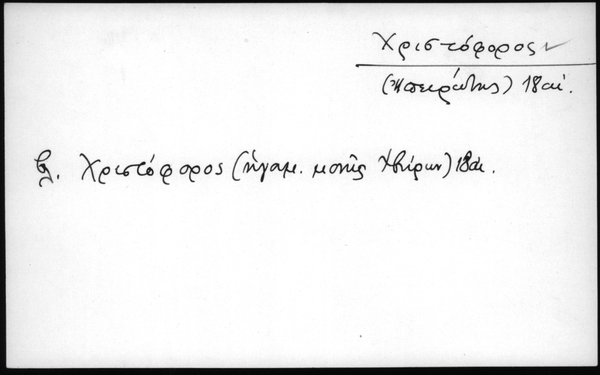 Χριστόφορος
(Ηπειρώτης) 18 αἰ.
βλ. Χριστόφορος (ἡγαμ. μονῆς Ἰβήρων) 18 αἰ.